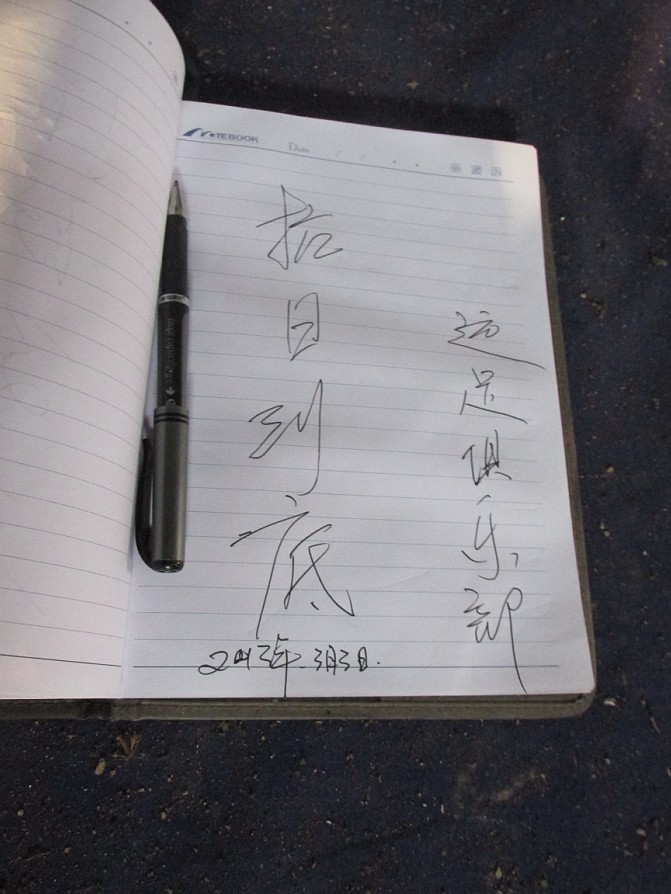 NOTEBOOK
Date
远足俱乐部
拍目到底
2013年.3月3日.